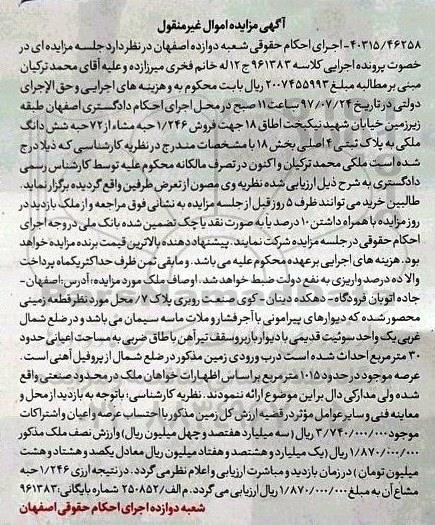 آگهی مزایده اموال غیرمنقول
۴۰۳۱۵/۴۶۲۵۸- اجرای احکام حقوقی شعبه دوازده اصفهان در نظر دارد جلسه مزایده ای در
خصوص پرونده اجرایی کلاسه ۹۶۱۳۸۳ ج ۱۲ له خانم فخری میرزازده و علیه آقای محمد ترکیان
مبنی بر مطالبه مبلغ ۲۰۰۷۴۵۵۹۹۳ ریال بابت محکوم به و هزینه های اجرایی و حق الاجرای
دولتی در تاریخ ۹۷/۰۷/۲۴ ساعت ۱۱ صبح در محل اجرای احکام دادگستری اصفهان طبقه
زیرزمین خیابان شهید نیکبخت اطاق ۱۸ جهت فروش ۱/۲۴۶ حبه مشاع از ۷۲ حبه شش دانگ
ملکی به پلاک ثبتی ۴ اصلی بخش ۱۸ با مشخصات مندرج در نظریه کارشناسی که ذیلا درج
شده است ملکی محمد ترکیان و اکنون در تصرف مالکانه محکوم علیه توسط کارشناس رسمی
دادگستری به شرح ذیل ارزیابی شده نظریه وی مصون از تعرض طرفین واقع گردیده برگزار نماید.
طالبین خرید می توانند ظرف ۵ روز قبل از جلسه مزایده به نشانی فوق مراجعه و از ملک بازدید در
روز مزایده با همراه داشتن ۱۰ درصد یا به صورت نقد یا چک تضمین شده بانک ملی در وجه اجرای
احکام حقوقی در جلسه مزایده شرکت نمایند. پیشنهاد دهنده بالاترین قیمت برنده مزایده خواهد
بود. هزینه های اجرایی بر عهده محکوم علیه می باشد. و مابقی ثمن ظرف حداکثر یکماه پرداخت
والا ده درصد واریزی به نفع دولت ضبط خواهد شد. اوصاف ملک مورد مزایده: آدرس: اصفهان-
جاده اتوبان فرودگاه- دهکده دینان- کوی صنعت روبری پلاک ۷/ محل مورد نظر قطعه زمینی
محصور شده که دیوارهای پیرامونی با آجر فشار و ملات ماسه سیمان می باشد و در ضلع شمال
غربی یک واحد سوئیت قدیمی با دیوار باربر و سقف تیرآهن با طاق ضربی به مساحت اعیانی حدود
۳۰ متر مربع احداث شده است درب ورودی زمین مذکور در ضلع شمال از پروفیل آهنی است.
عرصه موجود در حدود ۱۰۱۵ متر مربع بر اساس اظهارات خواهان ملک در محدود صنعتی واقع
شده ولی مدارکی دال بر این موضوع ارائه ننمودند. نظریه کارشناسی: با توجه به بازدید از محل و
معاینه فنی و سایر عوامل مؤثر در قضیه ارزش کل زمین مذکور با احتساب عرصه و اعیان و اشتراکات
موجود ۳/۷۴۰/۰۰۰/۰۰۰ ریال (سه میلیارد هفتصد و چهل میلیون ریال) و ارزش نصف ملک مذکور
۱/۸۷۰/۰۰۰/۰۰۰ ریال (یک میلیارد و هشتصد و هفتاد میلیون ریال معادل یکصد و هشتاد و هشت
میلیون تومان) در زمان بازدید و مباشرت ارزیابی و اعلام نظر می گردد. در نتیجه ارزی ۱/۲۴۶ حبه
مشاع آن به مبلغ ۱/۸۷۰/۰۰۰/۰۰۰ ریال ارزیابی می گردد. م الف/۲۵۰۸۵۲ شماره بایگانی: ۹۶۱۳۸۳
شعبه دوازده اجرای احکام حقوقی اصفهان